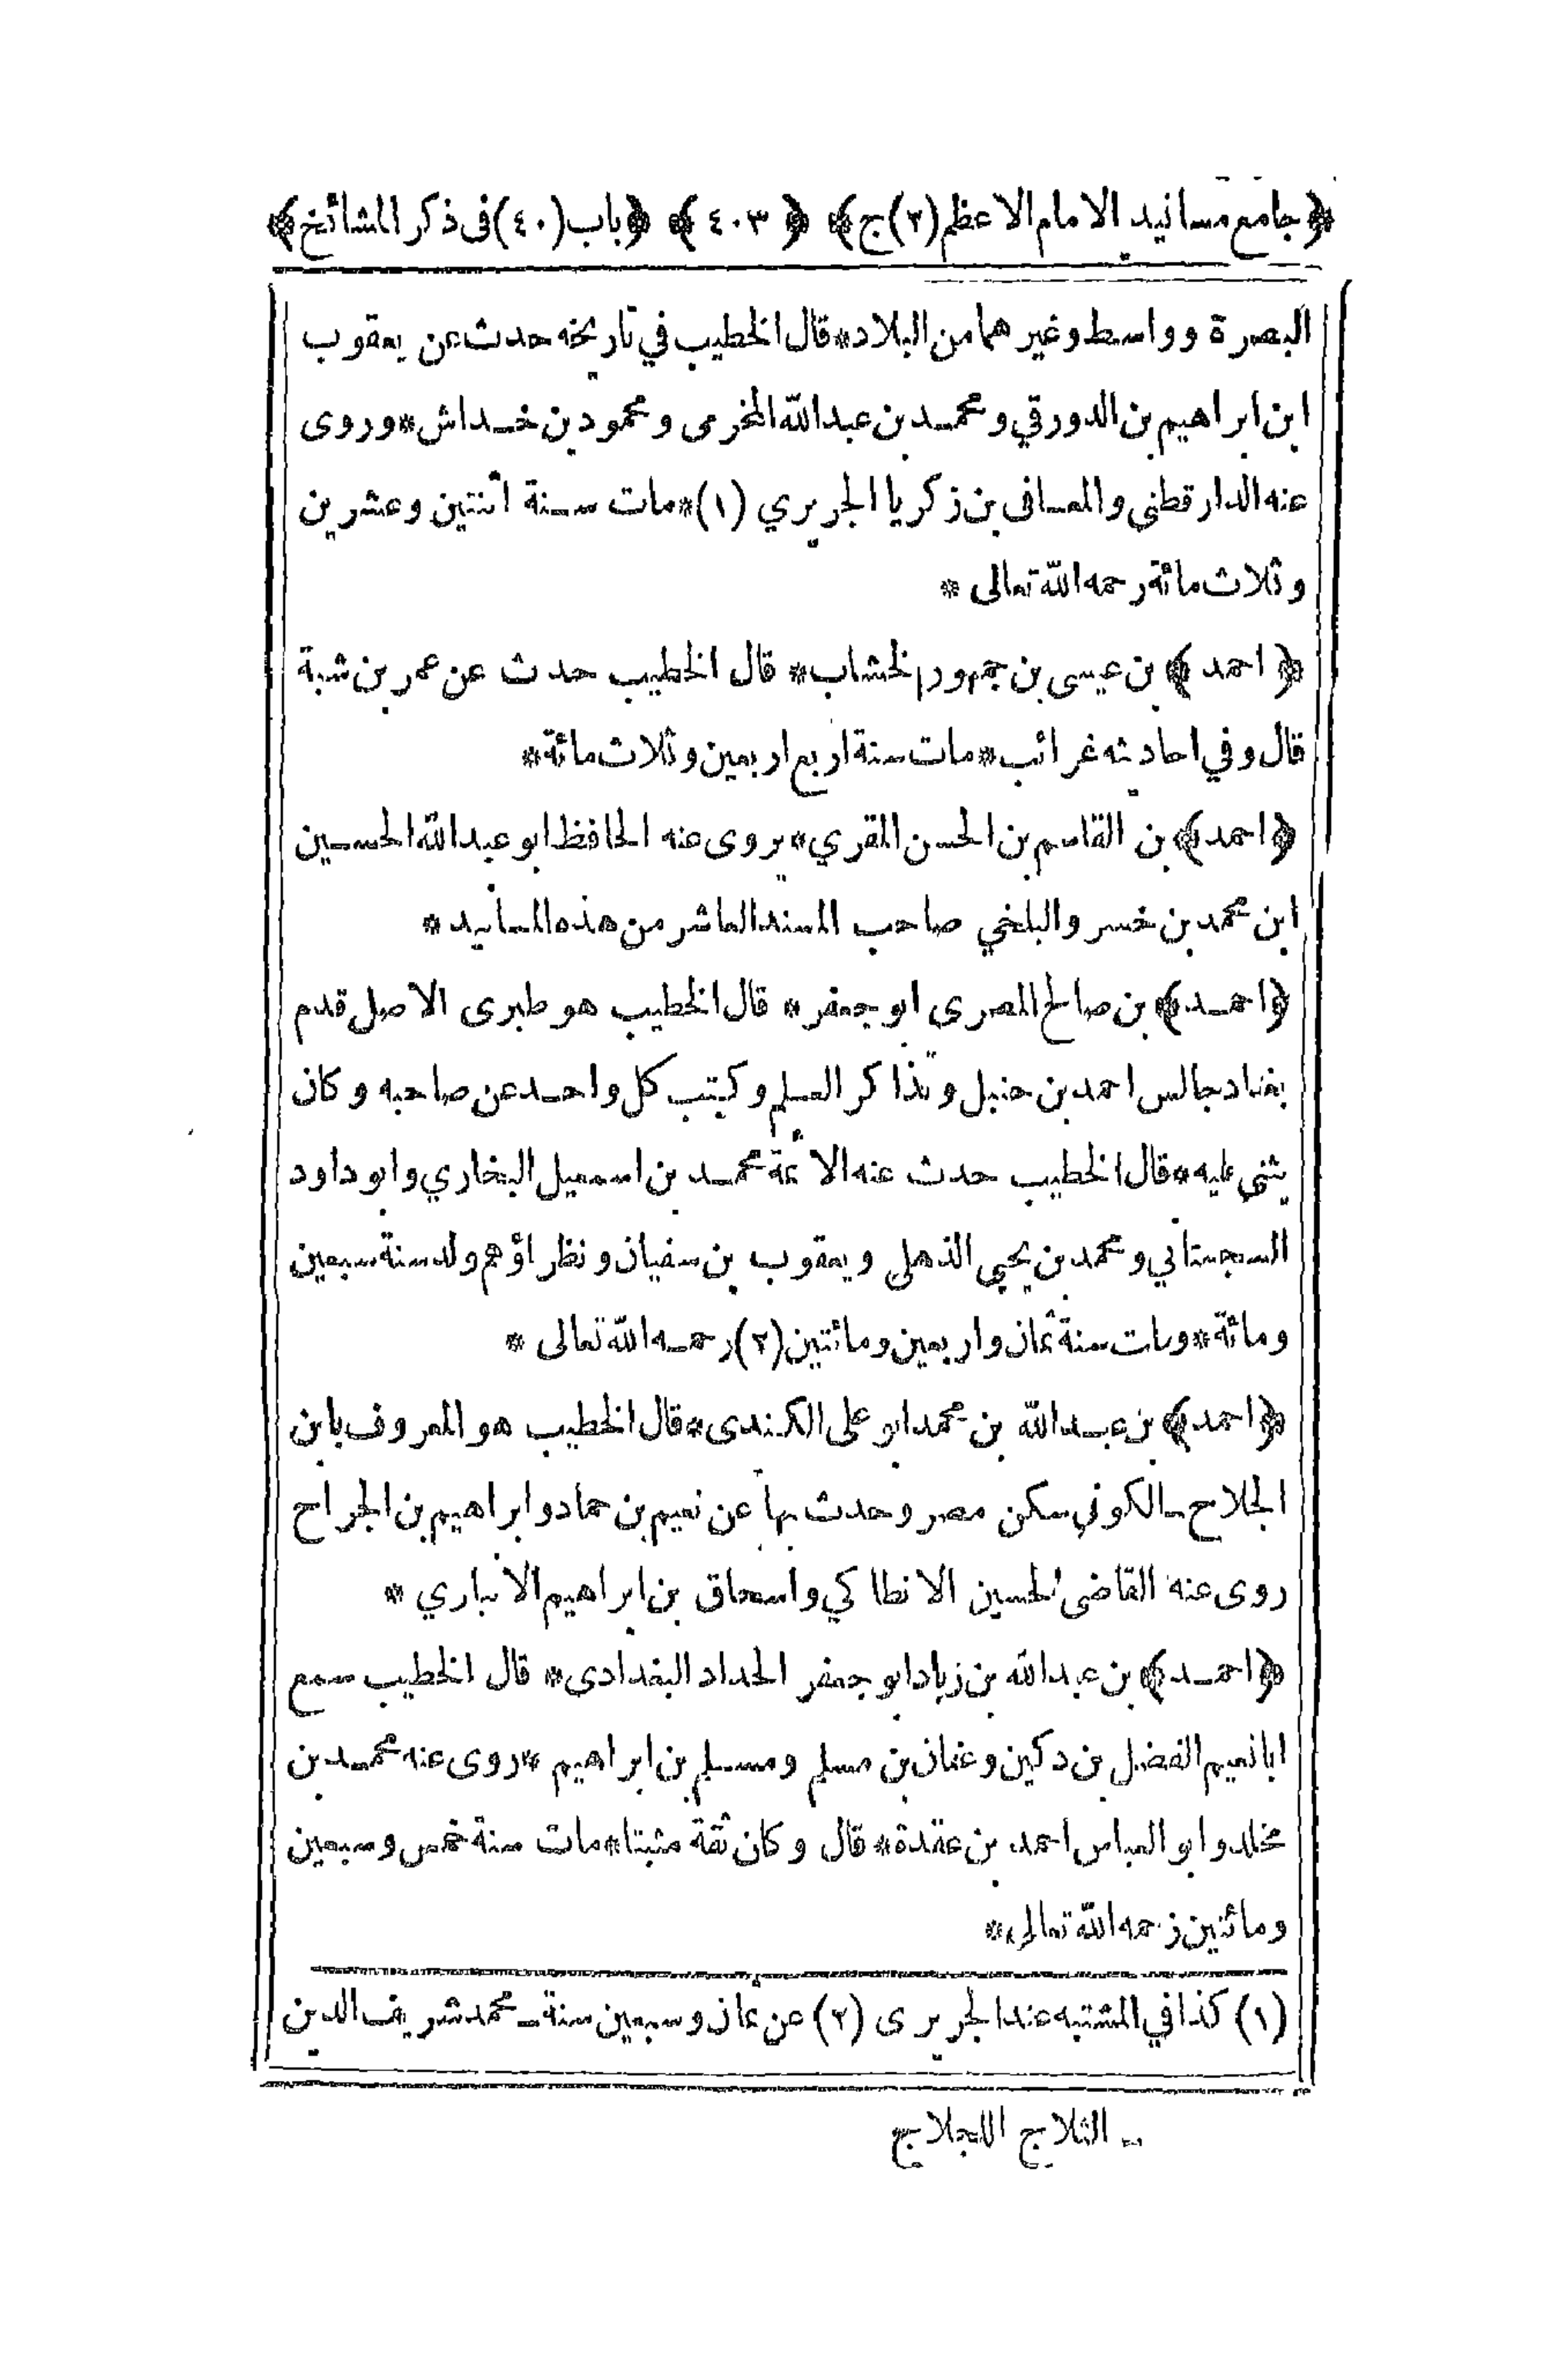 ﴿جامع مسانيد الامام الاعظم(٢)ج﴾ ﴿٤٠٣﴾ ﴿باب(٤٠)فى ذكر المشائخ﴾
البصرة وواسط وغيرهما من البلاد*قال الخطيب في تاريخه حدث عن يعقوب
ابن ابراهيم بن الدورقي ومحمد بن عبدالله المخرمى ومحمود بن خداش*وروى
عنه الدارقطنى والمعافى بن زكريا الجريري (١)*مات سنة اثنتين وعشرين
وثلاث مائة رحمه الله تعالى *
﴿احمد﴾ بن عيسى بن جمهور الخشاب* قال الخطيب حدث عن عمر بن شبة
قال وفي احاديثه غرائب*مات سنة اربع اربعين وثلاث مائة*
﴿احمد﴾ بن القاسم بن الحسن المقري*يروى عنه الحافظ ابو عبدالله الحسين
ابن محمد بن خسرو البلخي صاحب المسند العاشر من هذه المسانيد *
﴿احمد﴾ بن صالح المصرى ابو جعفر* قال الخطيب هو طبرى الاصل قدم
بغداد جالس احمد بن حنبل وتذاكر العلم وكتب كل واحد عن صاحبه وكان
يثني عليه*قال الخطيب حدث عنه الائمة محمد بن اسمعيل البخاري وابو داود
السجستاني ومحمد بن يحيى الذهلي ويعقوب بن سفيان ونظراؤهم ولد سنة سبعين
ومائة*ومات سنة ثمان واربعين ومائتين(٢)رحمه الله تعالى *
﴿احمد﴾ بن عبدالله بن محمد ابو على الكندى*قال الخطيب هو المعروف بابن
الجلاح ـ الكوفي سكن مصر وحدث بها عن نعيم بن حماد وابراهيم بن الجراح
روى عنه القاضى الحسين الانطاكي واسحاق بن ابراهيم الانباري *
﴿احمد﴾ بن عبدالله بن زياد ابو جعفر الحداد البغدادى* قال الخطيب سمع
ابا نعيم الفضل بن دكين وعفان بن مسلم ومسلم بن ابراهيم *روى عنه محمد بن
مخلد وابو العباس احمد بن عقدة* قال وكان ثقة مثبتا*مات سنة خمس وسبعين
ومائتين رحمه الله تعالى*
(١) كذا في المشتبه عند الجريرى (٢) عن ثمان وسبعين سنة ـ محمد شريف الدين
ـ الثلاج اللجلاج